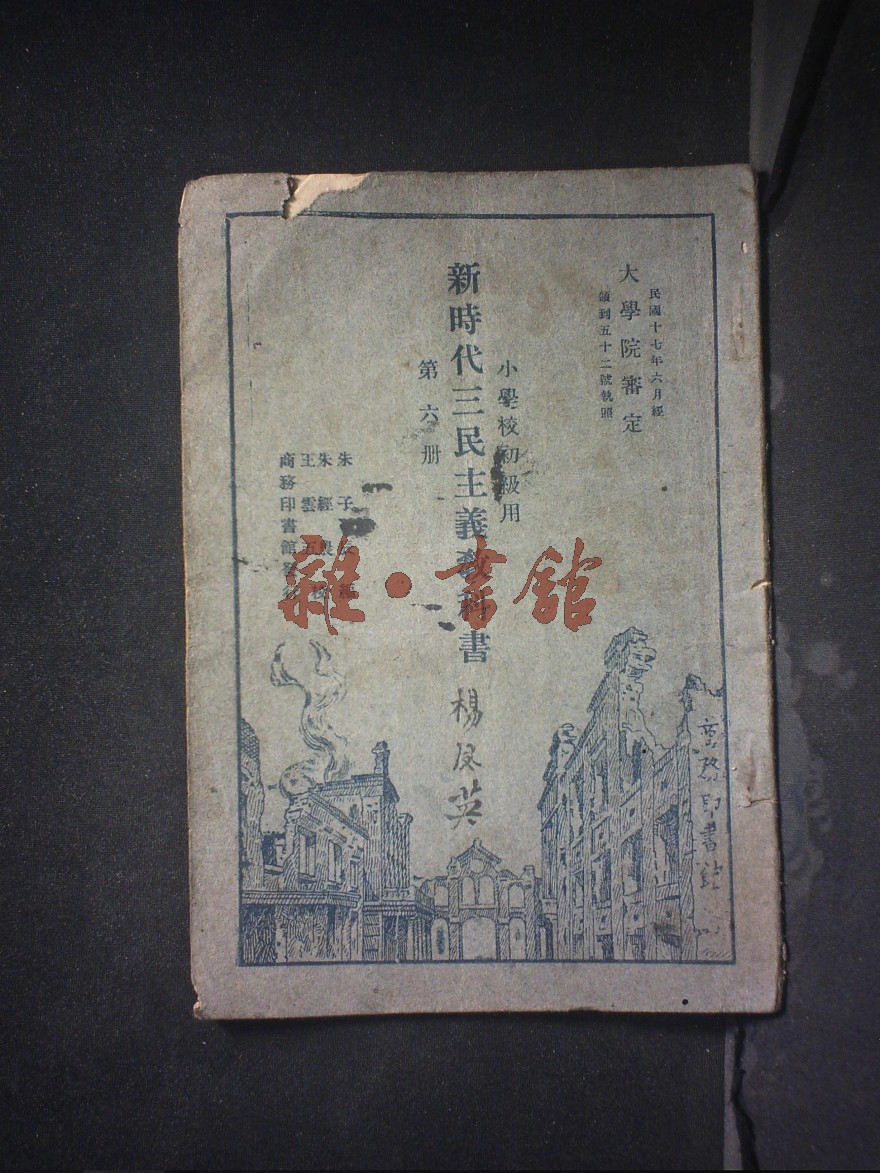 民國十七年六月經
大學院審定
領到五十二號執照
小學校初級用
新時代三民主義教科書
第六册
朱子
朱經農
王雲五
商務印書館發行
楊
英
商務印書館
雜·書館